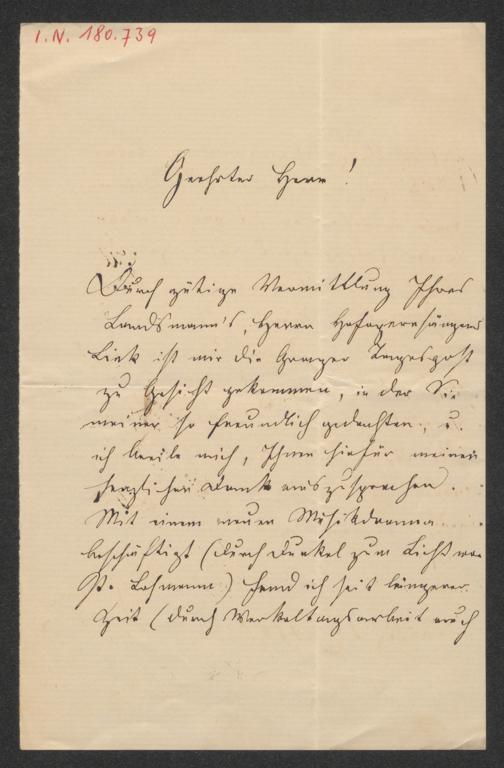 I.N. 180.739
Geehrter Herr!
Durch gütige Vermittlung Ihres
Landsmann's, Herrn Hofopernsängers
Link ist mir die Grazer Tagespost
zu Gesicht gekommen, in der Sie
meiner so freundlich gedachten, u.
ich beeile mich, Ihnen hiefür meinen
herzlichen Dank auszusprechen.
Mit einem neuen Musikdrama
beschäftigt (Durch Dunkel zum Licht von
P. Lohmann) fand ich seit längerer
Zeit (durch Werkeltagsarbeit auch